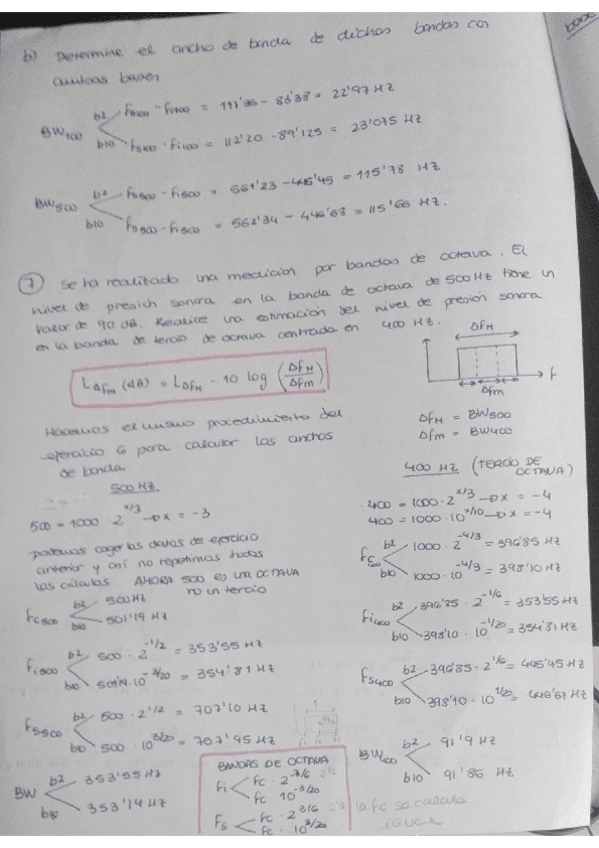 b) Determine el ancho de banda de dichas bandas con
ambas bases
BW100
b2 fs100 - fi100 = 111'36 - 88'38 = 22'97 HZ
b10 fs100 - fi100 = 112'20 - 89'125 = 23'075 HZ
BW500
b2 fs500 - fi500 = 561'23 - 445'45 = 115'78 HZ
b10 fs500 - fi500 = 562'34 - 446'68 = 115'66 HZ.
7 Se ha realizado una medición por bandas de octava. El
nivel de presión sonora en la banda de octava de 500 Hz tiene un
valor de 90 dB. Realice una estimación del nivel de presión sonora
en la banda de tercio de octava centrada en 400 HZ.
LΔfm (dB) = LΔfM - 10 log (ΔfM/Δfm)
ΔfM
f
Δfm
ΔfM = BW500
Δfm = BW400
Hacemos el mismo procedimiento del
ejercicio 6 para calcular los anchos
de banda
500 HZ
500 = 1000 · 2^x/3 → x = -3
podemos coger los datos de ejercicio
anterior y así no repetimos todos
los cálculos. AHORA 500 es una OCTAVA
no un tercio
fc500
b2 500HZ
b10 501'19 HZ
fi500
b2 500 · 2^-1/2 = 353'55 HZ
b10 501'19 · 10^-3/20 = 354'81 HZ
fs500
b2 500 · 2^1/2 = 707'10 HZ
b10 500 · 10^3/20 = 707'95 HZ
BW
b2 353'55 HZ
b10 353'14 HZ
BANDAS DE OCTAVA
fi
fc · 2^-3/6
fc 10^-3/20
fs
fc · 2^3/6
fc · 10^3/20
la fc se calcula
igual
400 HZ (TERCIO DE
OCTAVA)
400 = 1000 · 2^x/3 → x = -4
400 = 1000 · 10^x/10 → x = -4
b2 1000 · 2^-4/3 = 396'85 HZ
b10 = 398'10 HZ
fi400
b2 396'85 · 2^-1/6 = 353'55 HZ
b10 398'10 · 10^-1/20 = 354'81 HZ
fs400
b2 396'85 · 2^1/6 = 445'45 HZ
b10 398'10 · 10^1/20 = 446'67 HZ
BW400
b2 91'9 HZ
b10 91'86 HZ